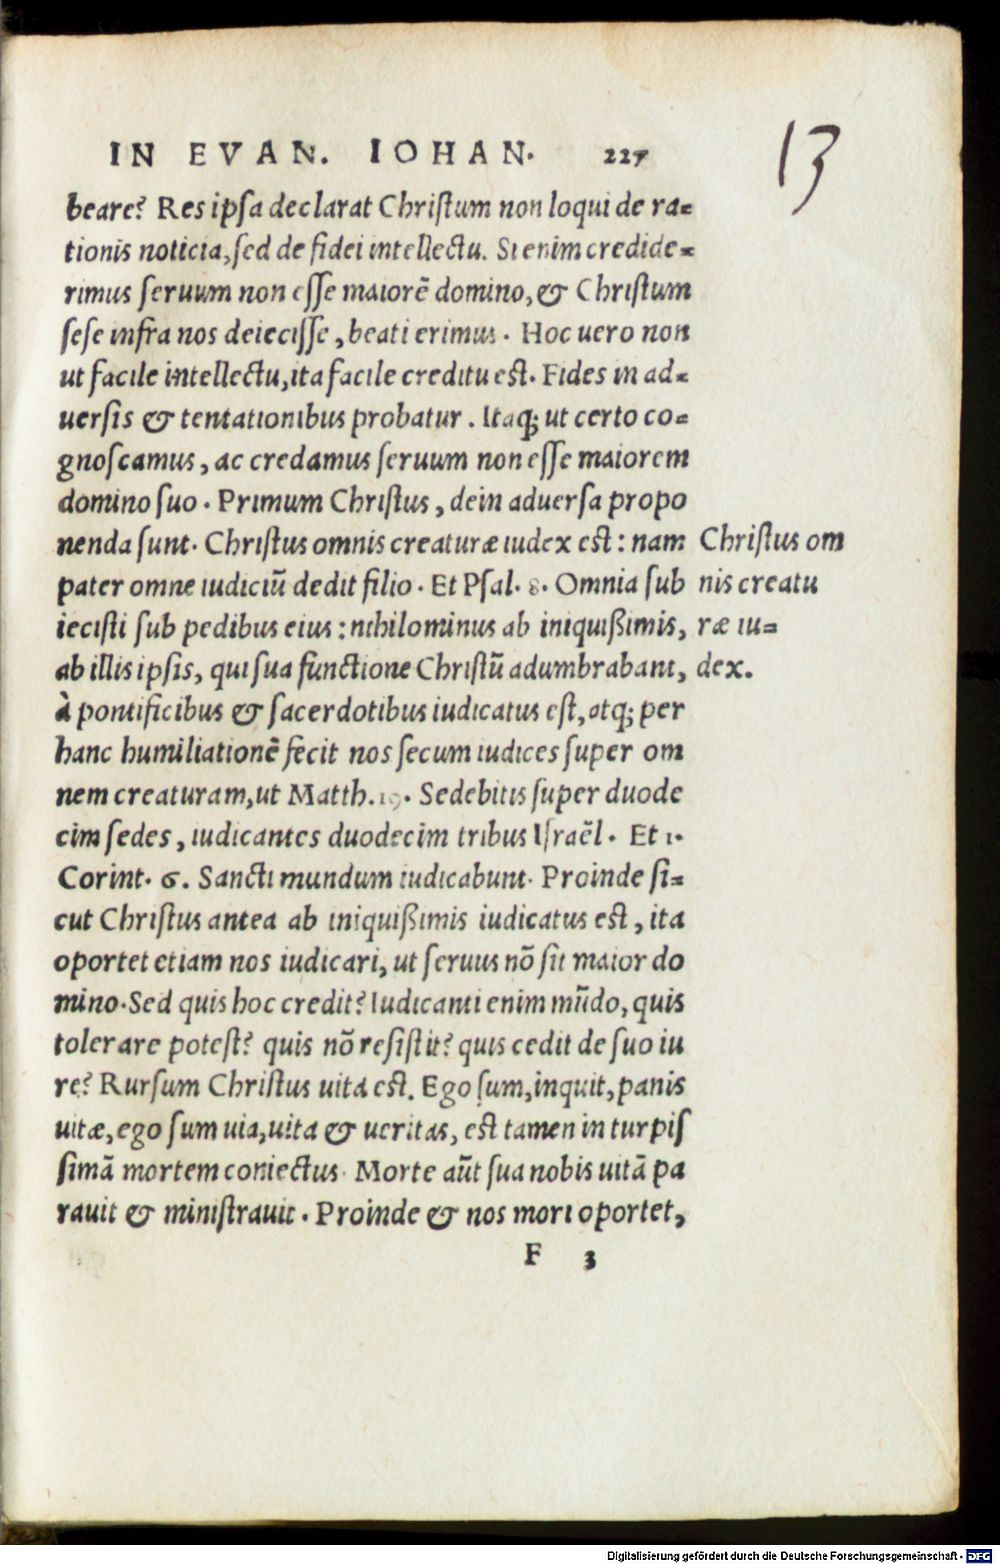 IN EVAN. IOHAN. 227
13
beare? Res ipſa declarat Chriſtum non loqui de ra=
tionis noticia, ſed de fidei intellectu. Si enim credide=
rimus ſeruum non eſſe maiorē domino, & Chriſtum
ſeſe infra nos deieciſſe, beati erimus. Hoc uero non
ut facile intellectu, ita facile creditu eſt. Fides in ad=
uerſis & tentationibus probatur. Itaq; ut certo co=
gnoſcamus, ac credamus ſeruum non eſſe maiorem
domino ſuo. Primum Chriſtus, dein aduerſa propo
nenda ſunt. Chriſtus omnis creaturæ iudex eſt: nam
pater omne iudiciū dedit filio. Et Pſal. 8. Omnia ſub
iecisti ſub pedibus eius: nihilominus ab iniquißimis,
ab illis ipſis, qui ſua functione Chriſtū adumbrabant,
à pontificibus & ſacerdotibus iudicatus eſt, atq; per
hanc humiliationē fecit nos ſecum iudices ſuper om
nem creaturam, ut Matth. 19. Sedebitis ſuper duode
cim ſedes, iudicantes duodecim tribus Iſraēl. Et 1.
Corint. 6. Sancti mundum iudicabunt. Proinde ſi=
cut Chriſtus antea ab iniquißimis iudicatus eſt, ita
oportet etiam nos iudicari, ut ſeruus nō ſit maior do
mino. Sed quis hoc credit? Iudicanti enim mūdo, quis
tolerare poteſt? quis nō reſiſtit? quis cedit de ſuo iu
re? Rurſum Chriſtus uita eſt. Ego ſum, inquit, panis
uitæ, ego ſum uia, uita & ueritas, eſt tamen in turpiſ
ſimā mortem coniectus. Morte aūt ſua nobis uitā pa
rauit & miniſtrauit. Proinde & nos mori oportet,
Chriſtus om
nis creatu
ræ iu=
dex.
F 3
Digitalisierung gefördert durch die Deutsche Forschungsgemeinschaft - DFG